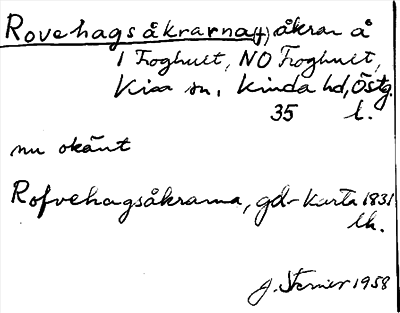 Rovehagsåkrarna(†) åkrar å
1 Froghult, NO Froghult,
Kisa sn, Kinda hd, Östg.
35 l.
nu okänt
Rofvehagsåkrarna, gd-karta 1831
lh.
J. Sterner 1958